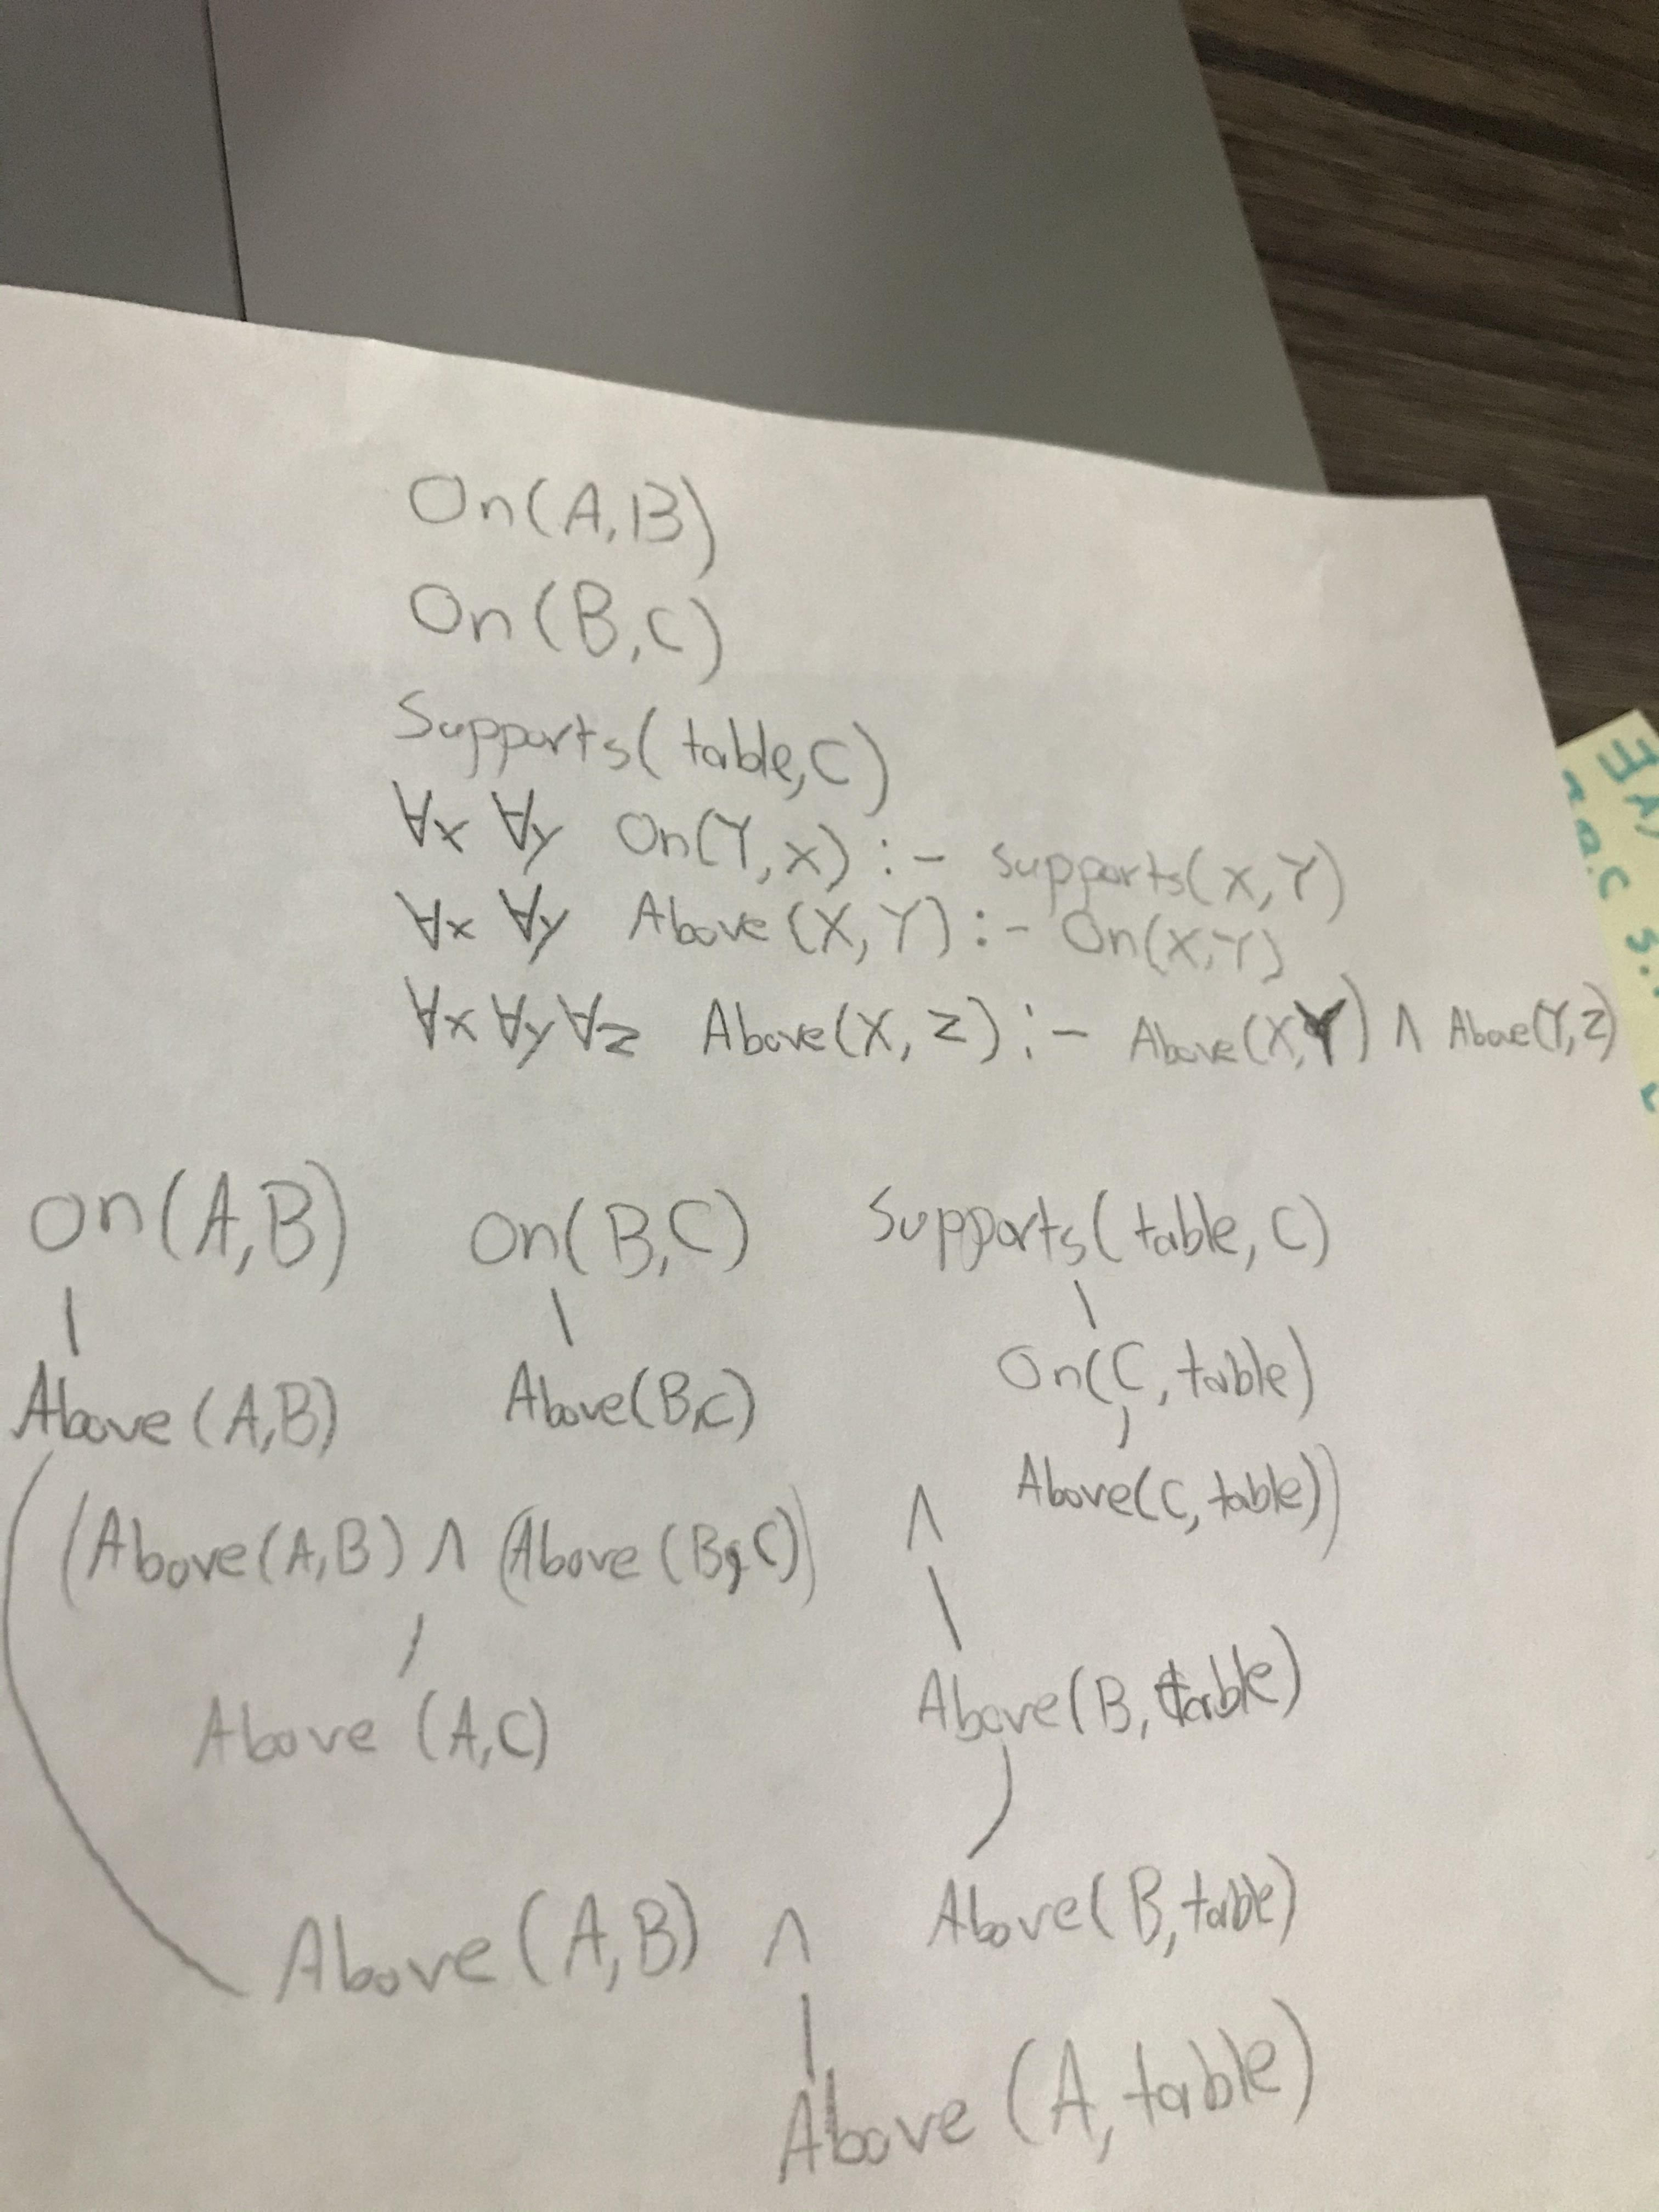 On(A,B)
On(B,C)
Supports(table,C)
∀x ∀y On(Y,x) :- supports(X,Y)
∀x ∀y Above(X,Y) :- On(X,Y)
∀x ∀y ∀z Above(X,Z) :- Above(X,Y) ∧ Above(Y,Z)
On(A,B) On(B,C) Supports(table,C)
On(C,table)
Above(A,B) Above(B,C)
Above(C,table))
(Above(A,B) ∧ (Above(B,C)) ∧
Above(B,table)
Above(A,C)
Above(A,B) ∧ Above(B,table)
Above(A,table)